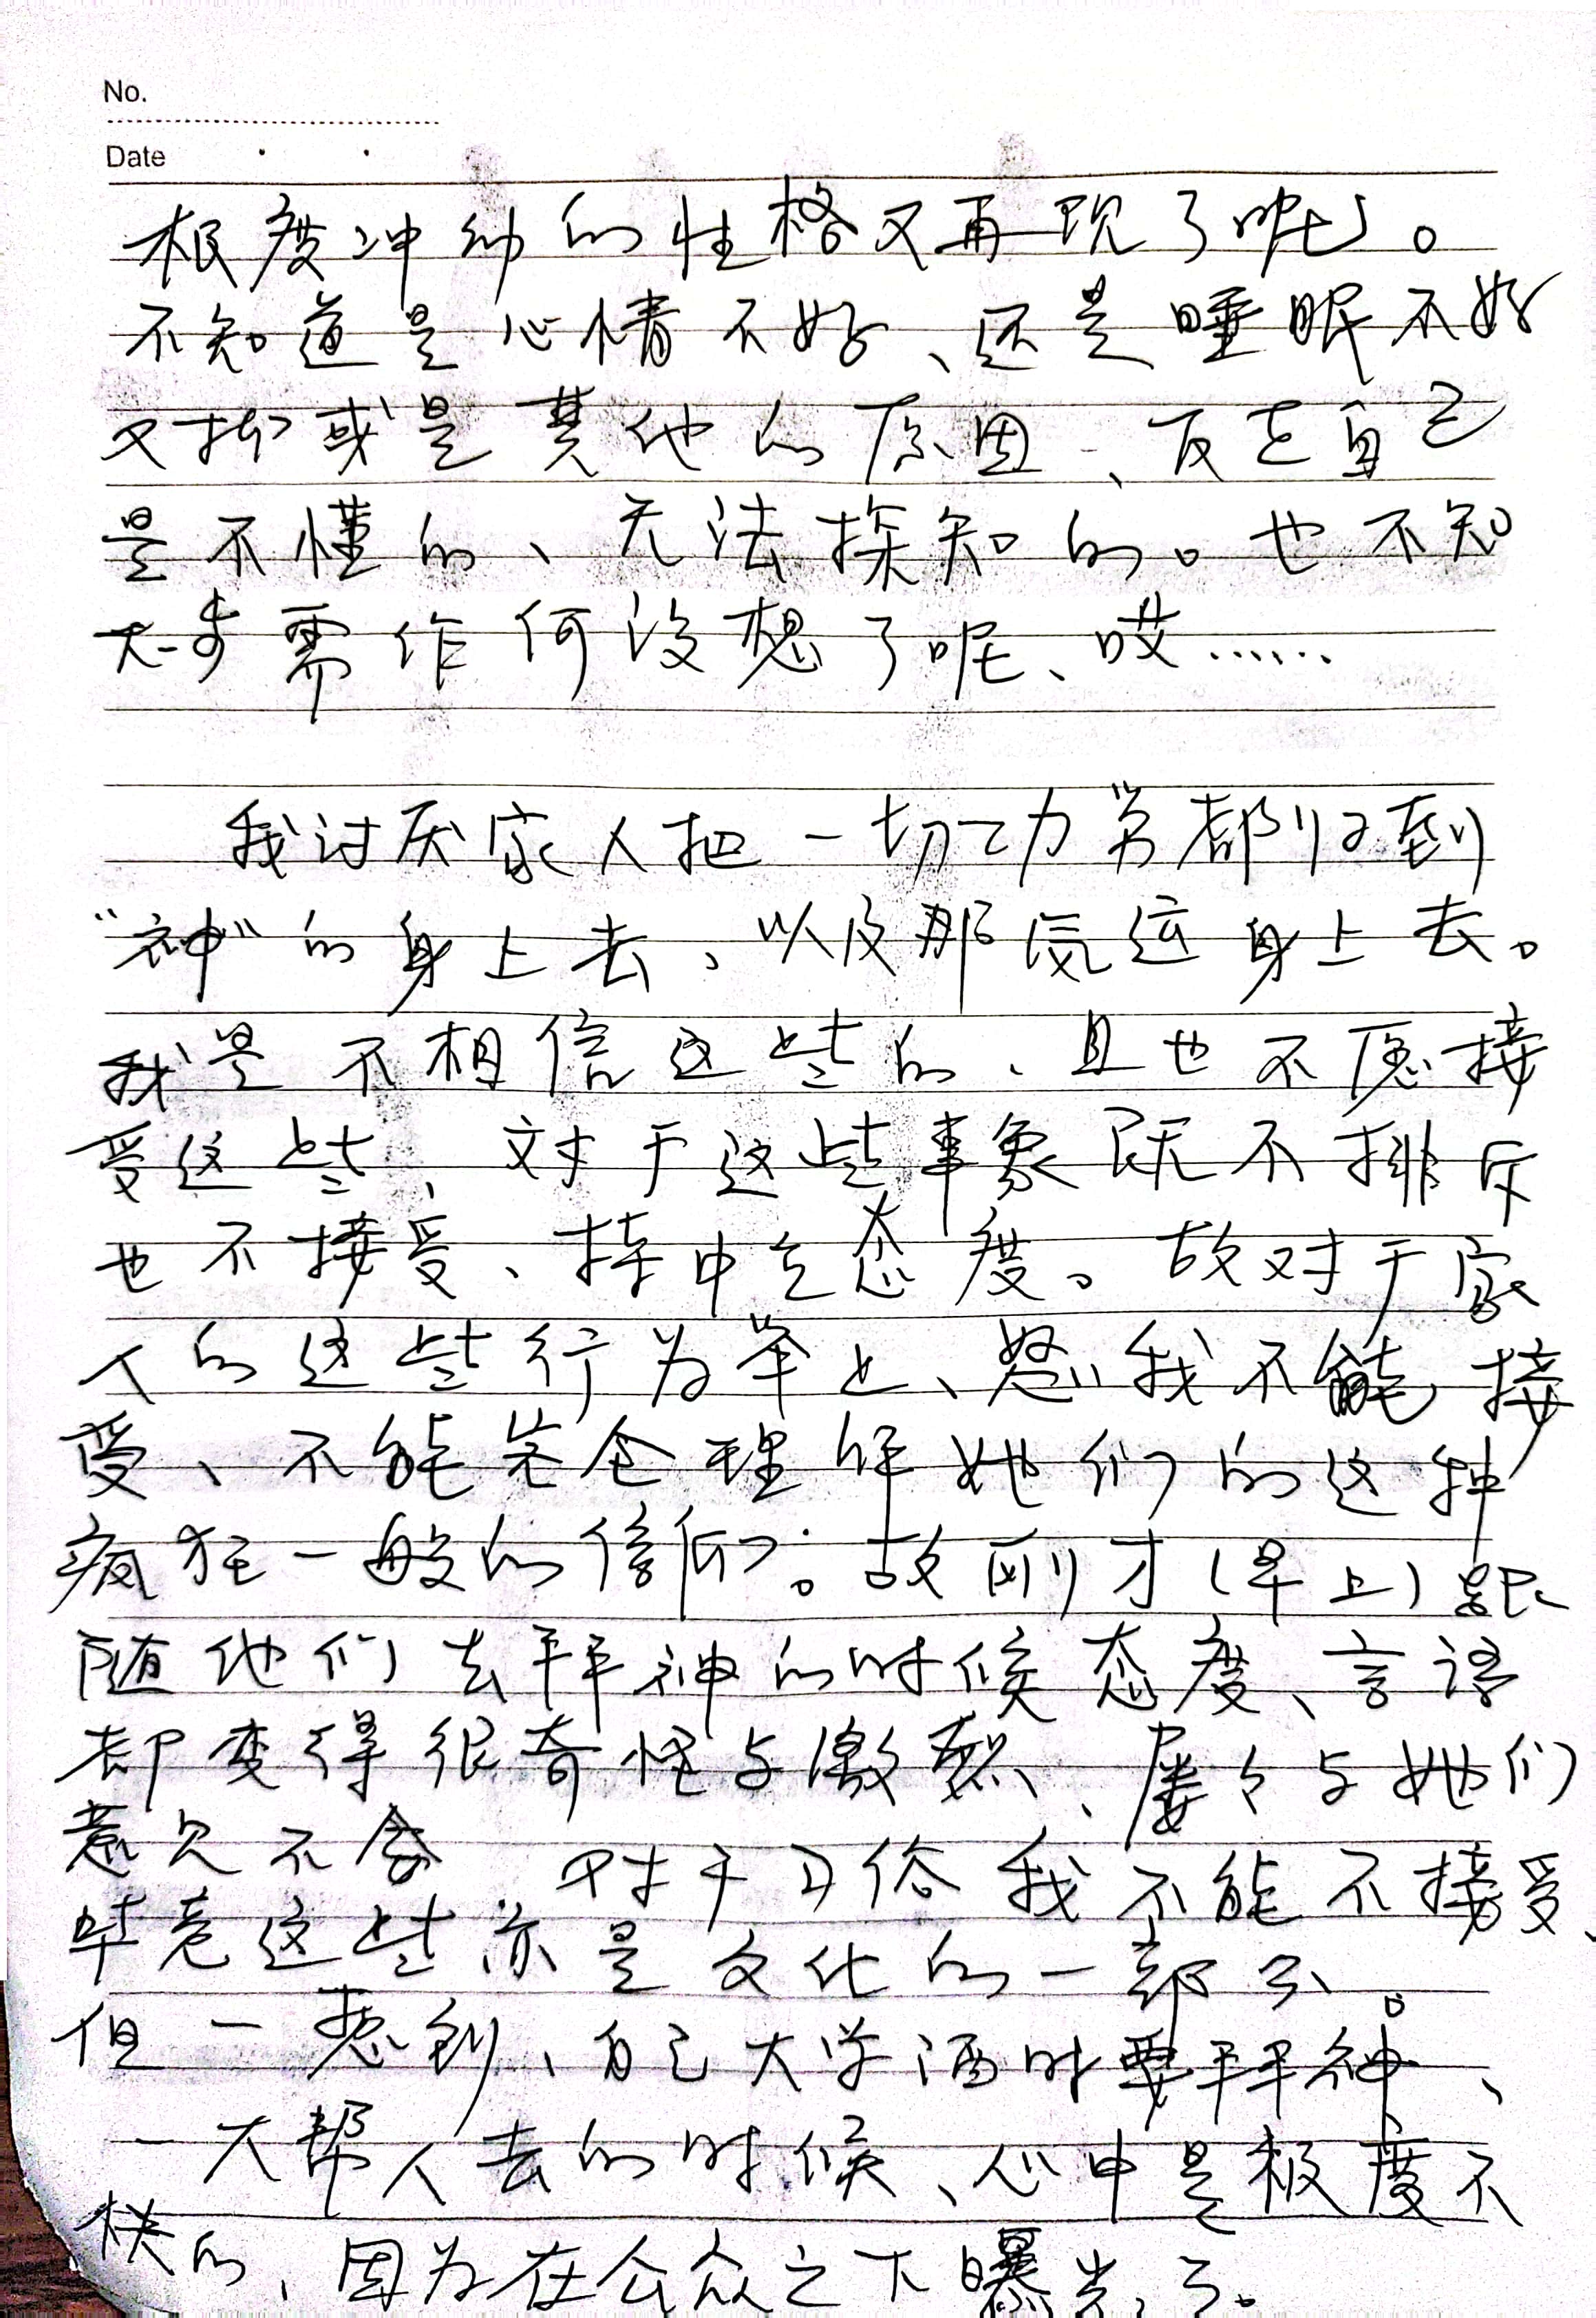 No.
Date
极度冲动的性格又再现了呢。
不知道是心情不好、还是睡眠不好
又抑或是其他的原因、反正自己
是不懂的、无法探知的。也不知
大步需作何设想了呢、哎……
我讨厌家人把一切功劳都归到
“神”的身上去、以及那氣运身上去。
我是不相信这些的、且也不愿接
受这些、对于这些事象既不排斥
也不接受、持中立态度。故对于家
人的这些行为举止、恕我不能接
受、不能完全理解她们的这种
疯狂一般的信仰。故刚才(早上)跟
随他们去拜神的时候态度、言语
都变得很奇怪与激烈、屡々与她们
意见不合 对于习俗我不能不接受、
毕竟这些亦是文化的一部分。
但一想到、自己大学酒时要拜神、
一大帮人去的时候、心中是极度不
快的、因为在公众之下曝光了。